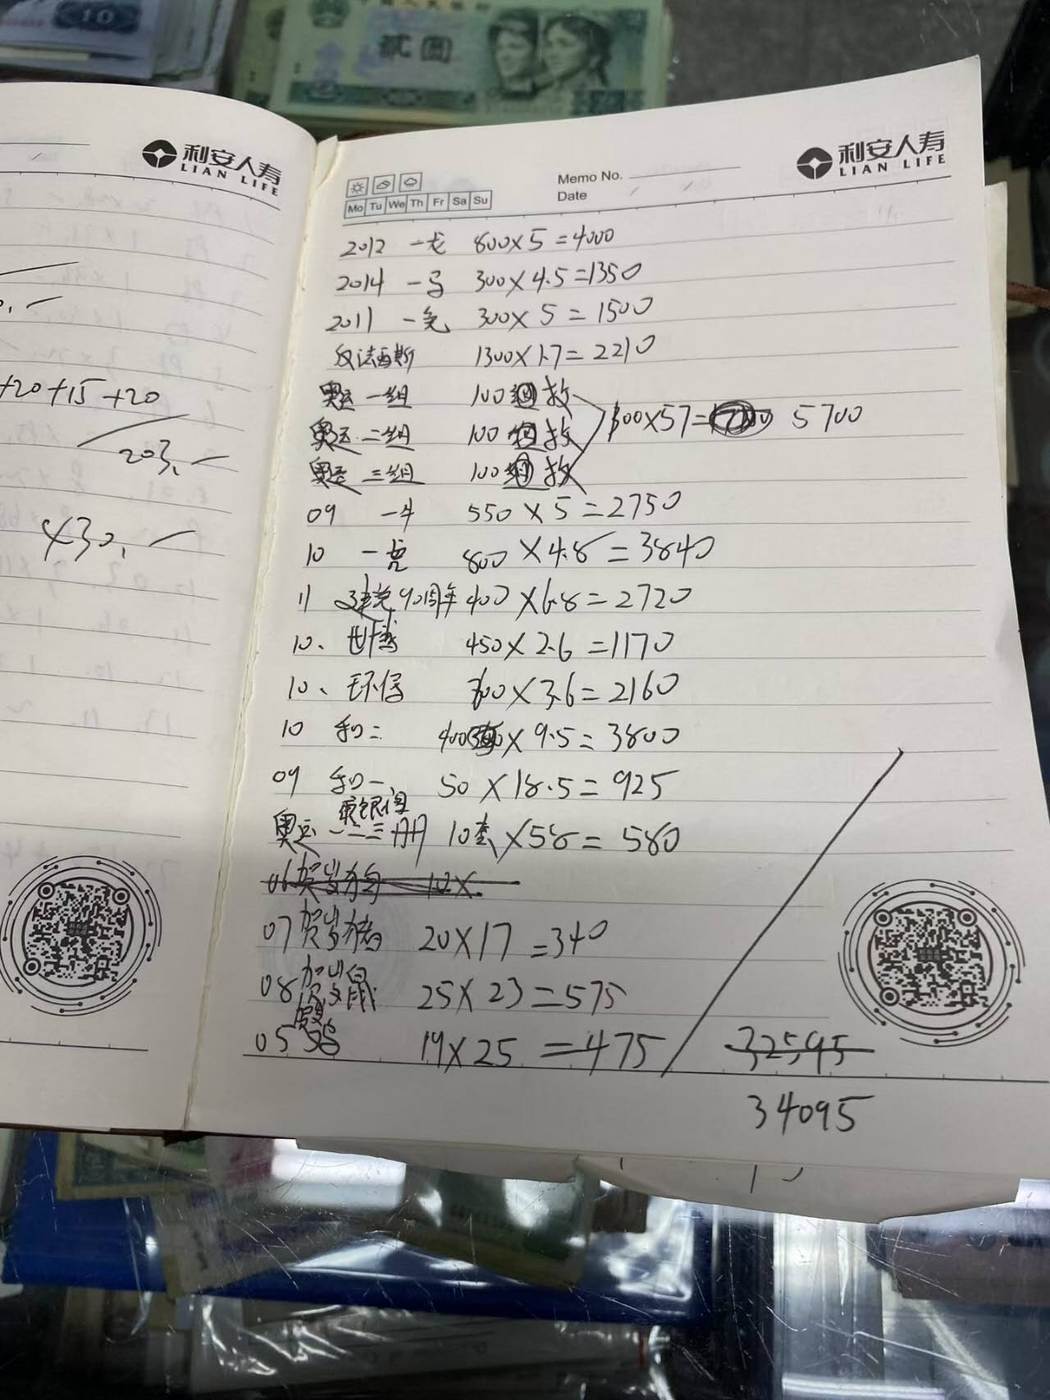 10
贰圆
利安人寿
LIAN LIFE
+20+15+20
203.
430.
利安人寿
LIAN LIFE
Memo No.
Date
Mo Tu We Th Fr Sa Su
2012 一龙 800×5=4000
2014 一马 300×4.5=1350
2011 一兔 300×5=1500
反法西斯 1300×1.7=2210
奥运一组 100 枚
奥运二组 100 枚
奥运三组 100 枚
100×57= 5700
09 一牛 550×5=2750
10 一虎 800×4.8=3840
11 建党90周年 400×6.8=2720
10、世博 450×2.6=1170
10、环保 600×3.6=2160
10 和二 400×9.5=3800
09 和一 50×18.5=925
奥运一二三册 10套×58=580
06贺岁狗 10×
07贺岁猪 20×17=340
08贺岁鼠 25×23=575
05鸡 19×25=475
32595
34095